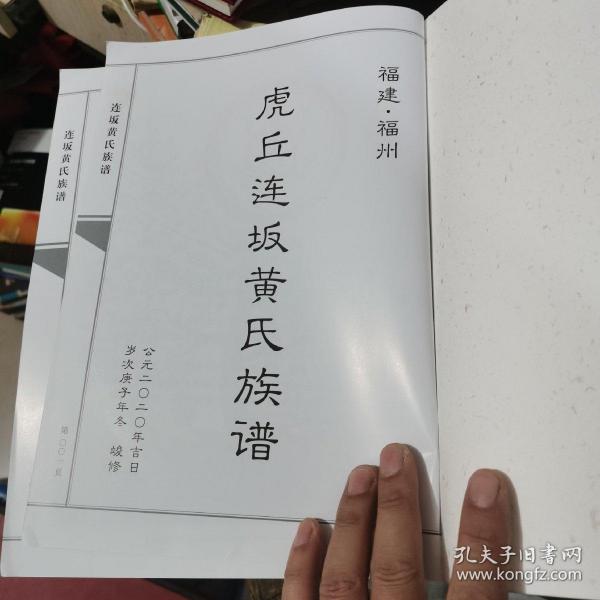 福建·福州
虎丘连坂黄氏族谱
公元二〇二〇年吉日
岁次庚子年冬 竣修
连坂黄氏族谱
第〇〇一页
连坂黄氏族谱
孔夫子旧书网
www.kongfz.com